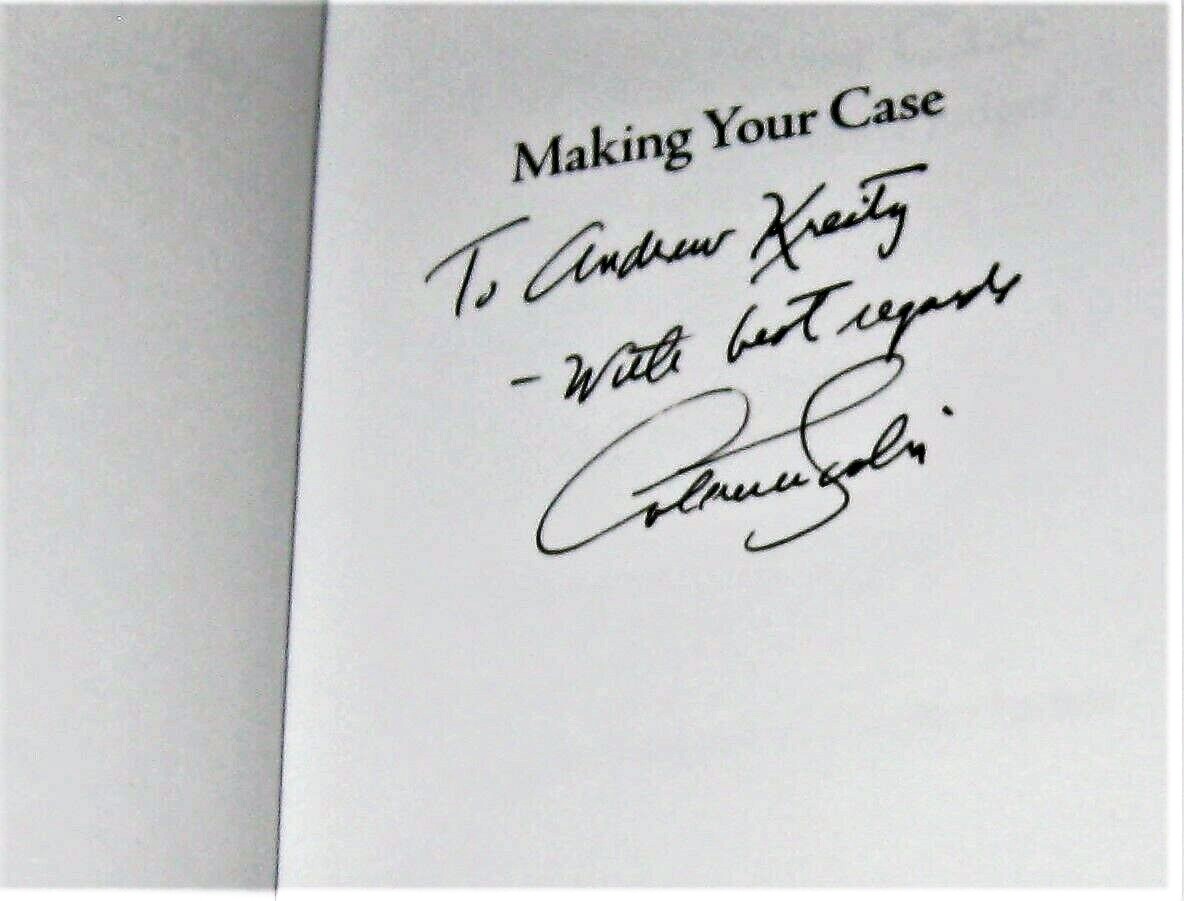 Making Your Case
To Andrew Kreity
- With best regards
Antonin Scalia